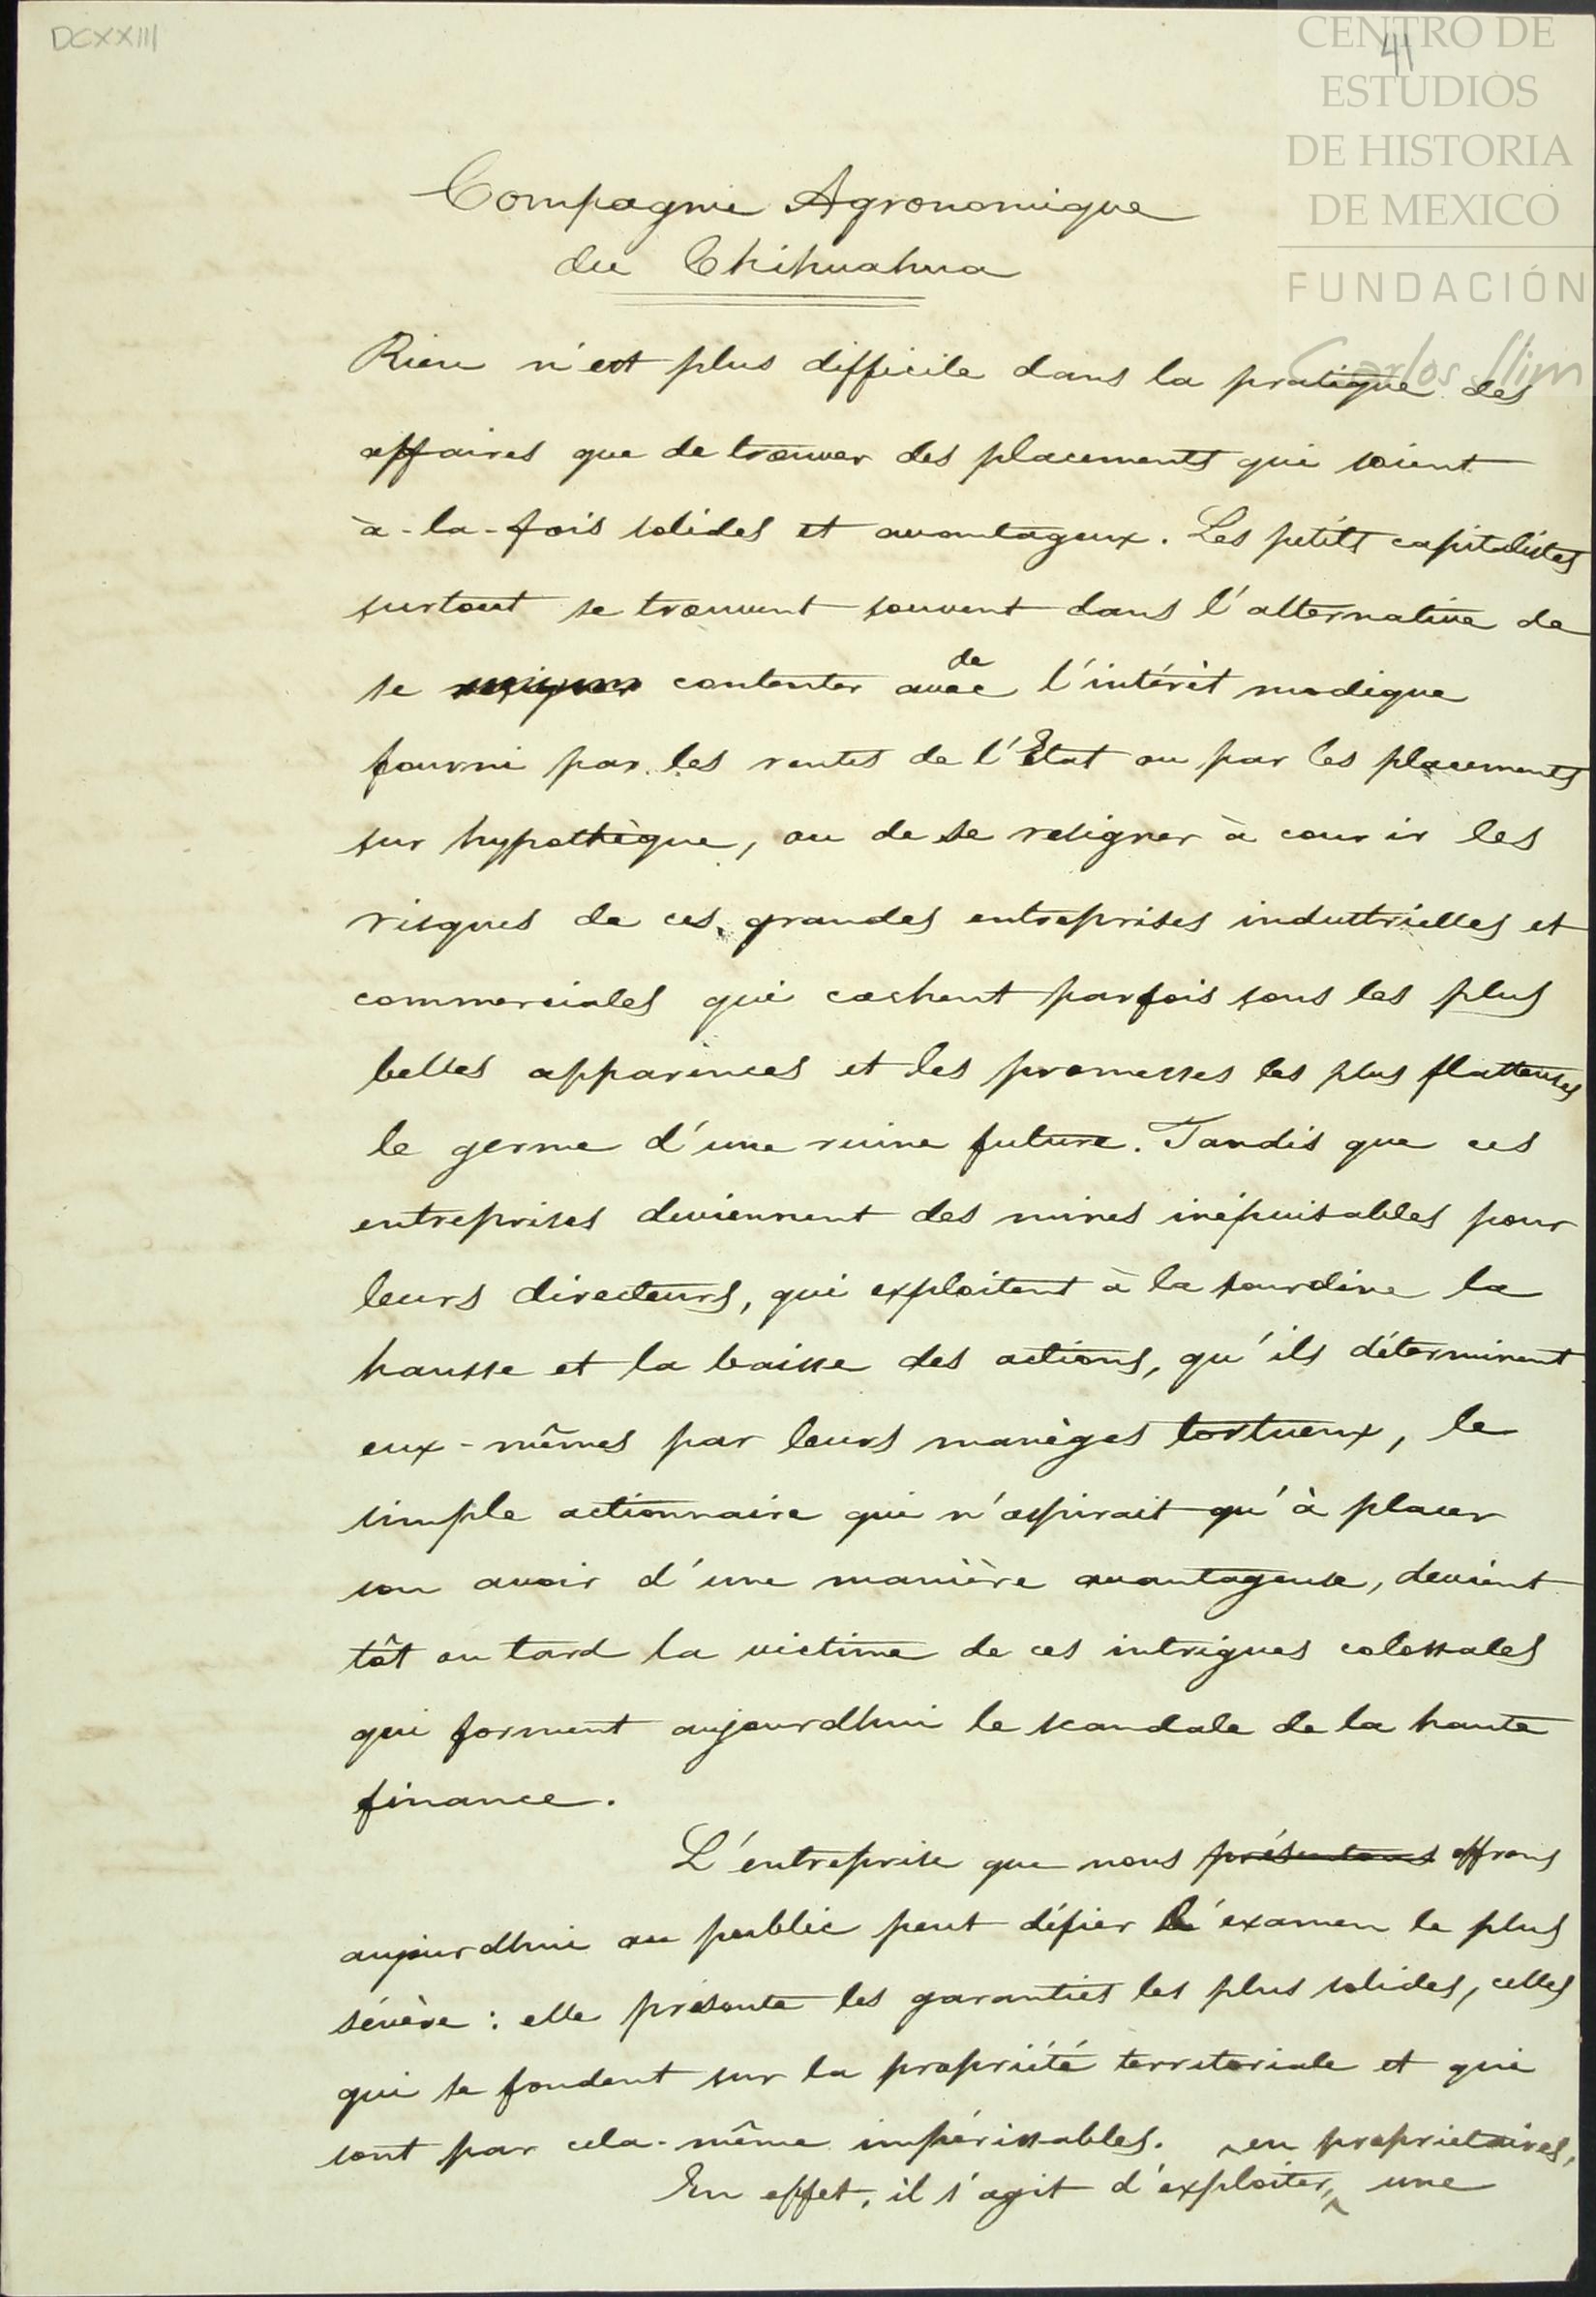 DCXXIII
41
CENTRO DE
ESTUDIOS
DE HISTORIA
DE MEXICO
FUNDACIÓN
Carlos Slim
Compagnie Agronomique
du Chihuahua
Rien n'est plus difficile dans la pratique des
affaires que de trouver des placements qui soient
à-la-fois solides et avantageux. Les petits capitalistes
surtout se trouvent souvent dans l'alternative de
de
se contenter avec l'intérêt modique
fourni par les rentes de l'Etat ou par les placements
sur hypothèque, ou de se resigner à courir les
risques de ces grandes entreprises industrielles et
commerciales qui cachent parfois sous les plus
belles apparences et les promesses les plus flatteuses
le germe d'une ruine future. Tandis que ces
entreprises deviennent des mines inépuisables pour
leurs directeurs, qui exploitent à la sourdine la
hausse et la baisse des actions, qu'ils déterminent
eux-mêmes par leurs manèges tortueux, le
simple actionnaire qui n'aspirait qu'à placer
son avoir d'une manière avantageuse, devient
tôt ou tard la victime de ces intrigues colossales
qui forment aujourdhui le scandale de la haute
finance.
L'entreprise que nous présentons offrons
aujourdhui au public peut défier l'examen le plus
sévère : elle présente les garanties les plus solides, celles
qui se fondent sur la propriété territoriale et qui
sont par cela-même impérissables.
en proprietaires,
En effet, il s'agit d'exploiter, une